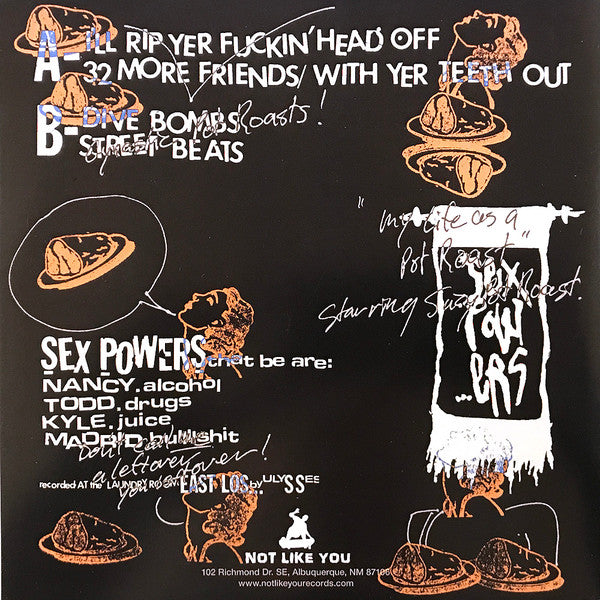 A- I'LL RIP YER FUCKIN' HEAD OFF
32 MORE FRIENDS/WITH YER TEETH OUT
B- DIVE BOMBS
STREET BEATS
Pot Roasts!
"My Life as a
Pot Roast"
Starring Susy Pot Roast.
SEX
POW
...ERS
SEX POWERS that be are:
NANCY.alcohol
TODD.drugs
KYLE.juice
MADRID.bullshit
Don't call me
a leftover
you leftover!
recorded AT the LAUNDRY ROOM EAST LOS... by ULYSSES
NOT LIKE YOU
102 Richmond Dr. SE, Albuquerque, NM 87106
www.notlikeyourecords.com